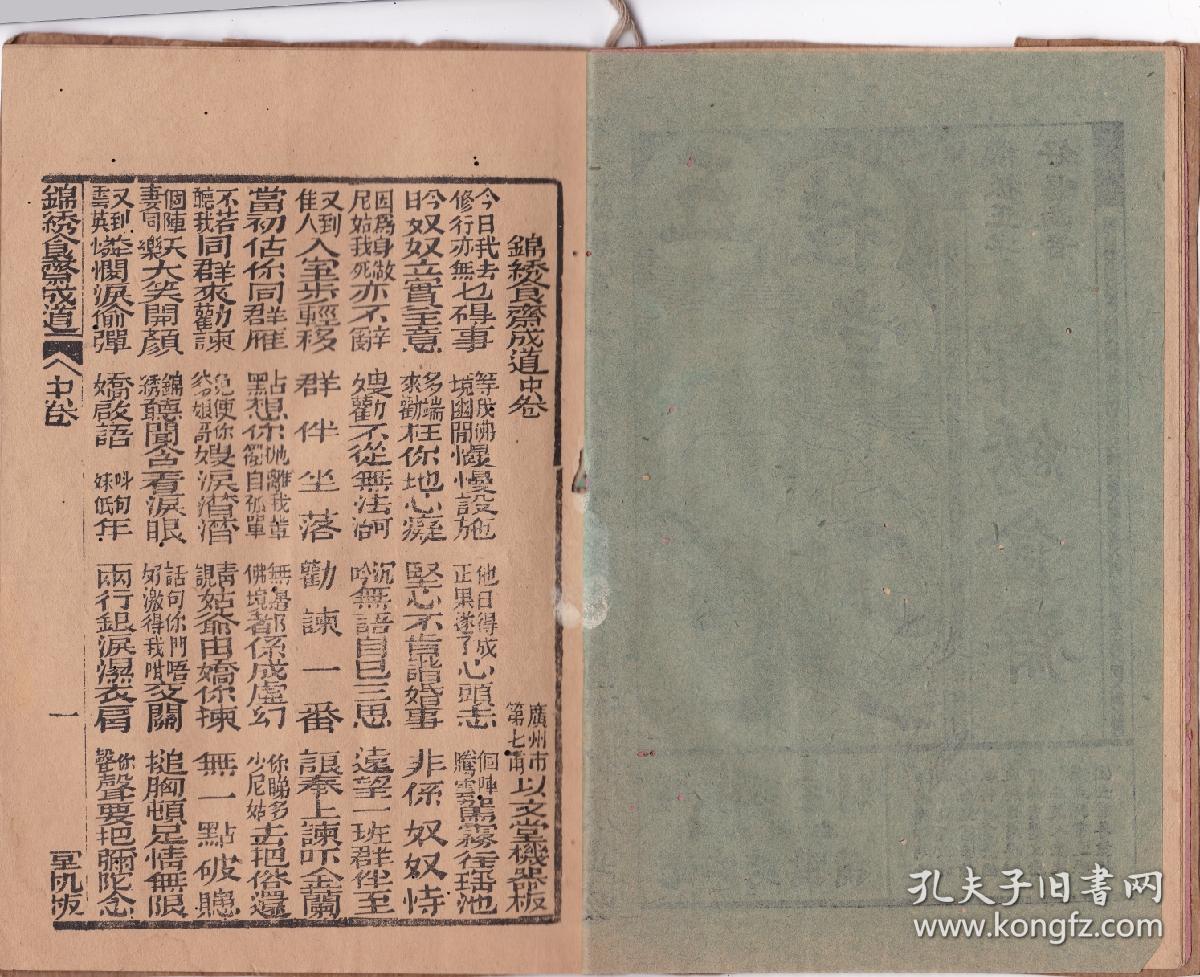 錦綉食齋成道中卷 廣州市第七甫以文堂機器板
今日我去修行亦無乜碍事 等成佛境幽閒慢慢設施 他日得成正果遂了心頭志 個陣騰雲駕霧往瑤池
今日奴奴立實主意 多端來勸枉你地心癡 堅心不肯諧婚事 非係奴奴恃
因為身做尼姑我死亦不辭 嫂勸不從無法 沉吟無語自已三思 遠望一班群伴至
又到佳人入室步輕移 群伴坐落勸諫一番 跟奉上諫吓金蘭
當初估你同群雁 點想你拋離我輩獨自孤單 無晷佛境都係成虛幻 你睇多少尼姑去把俗還
不若聽我同群來勸諫 免使你爹娘哥嫂淚潸潸 請姑爺由嬌你揀 無一點破聰
個陣妻同樂天大笑開顏 錦綉聽聞含着淚眼 話句你們唔好激得我咁交關 搥胸頓足情無限
又到雲英憐憫淚偷彈 嬌啟語 叫句妹低年 兩行銀淚濕衣肩 你聲聲要把彌陀念
錦綉食齋成道 中卷 一 機板
孔夫子旧書网
www.kongfz.com